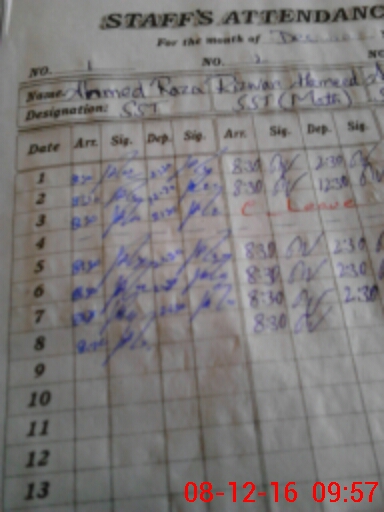 STAFF'S ATTENDANC
For the month of
NO. 1 NO. 2
Name: Ahmed Raza Rizwan Hameed
Designation: SST SST (Math)
Date Arr. Sig. Dep. Sig. Arr. Sig. Dep. Sig.
1 8:30 2:30 8:30 2:30
2 8:30 12:30 8:30 12:30
3 8:30 2:30 C. Leave
4
5 8:30 2:30 8:30 2:30
6 8:30 2:30 8:30 2:30
7 8:30 2:30 8:30 2:30
8 8:30 8:30
9
10
11
12
13
08-12-16 09:57